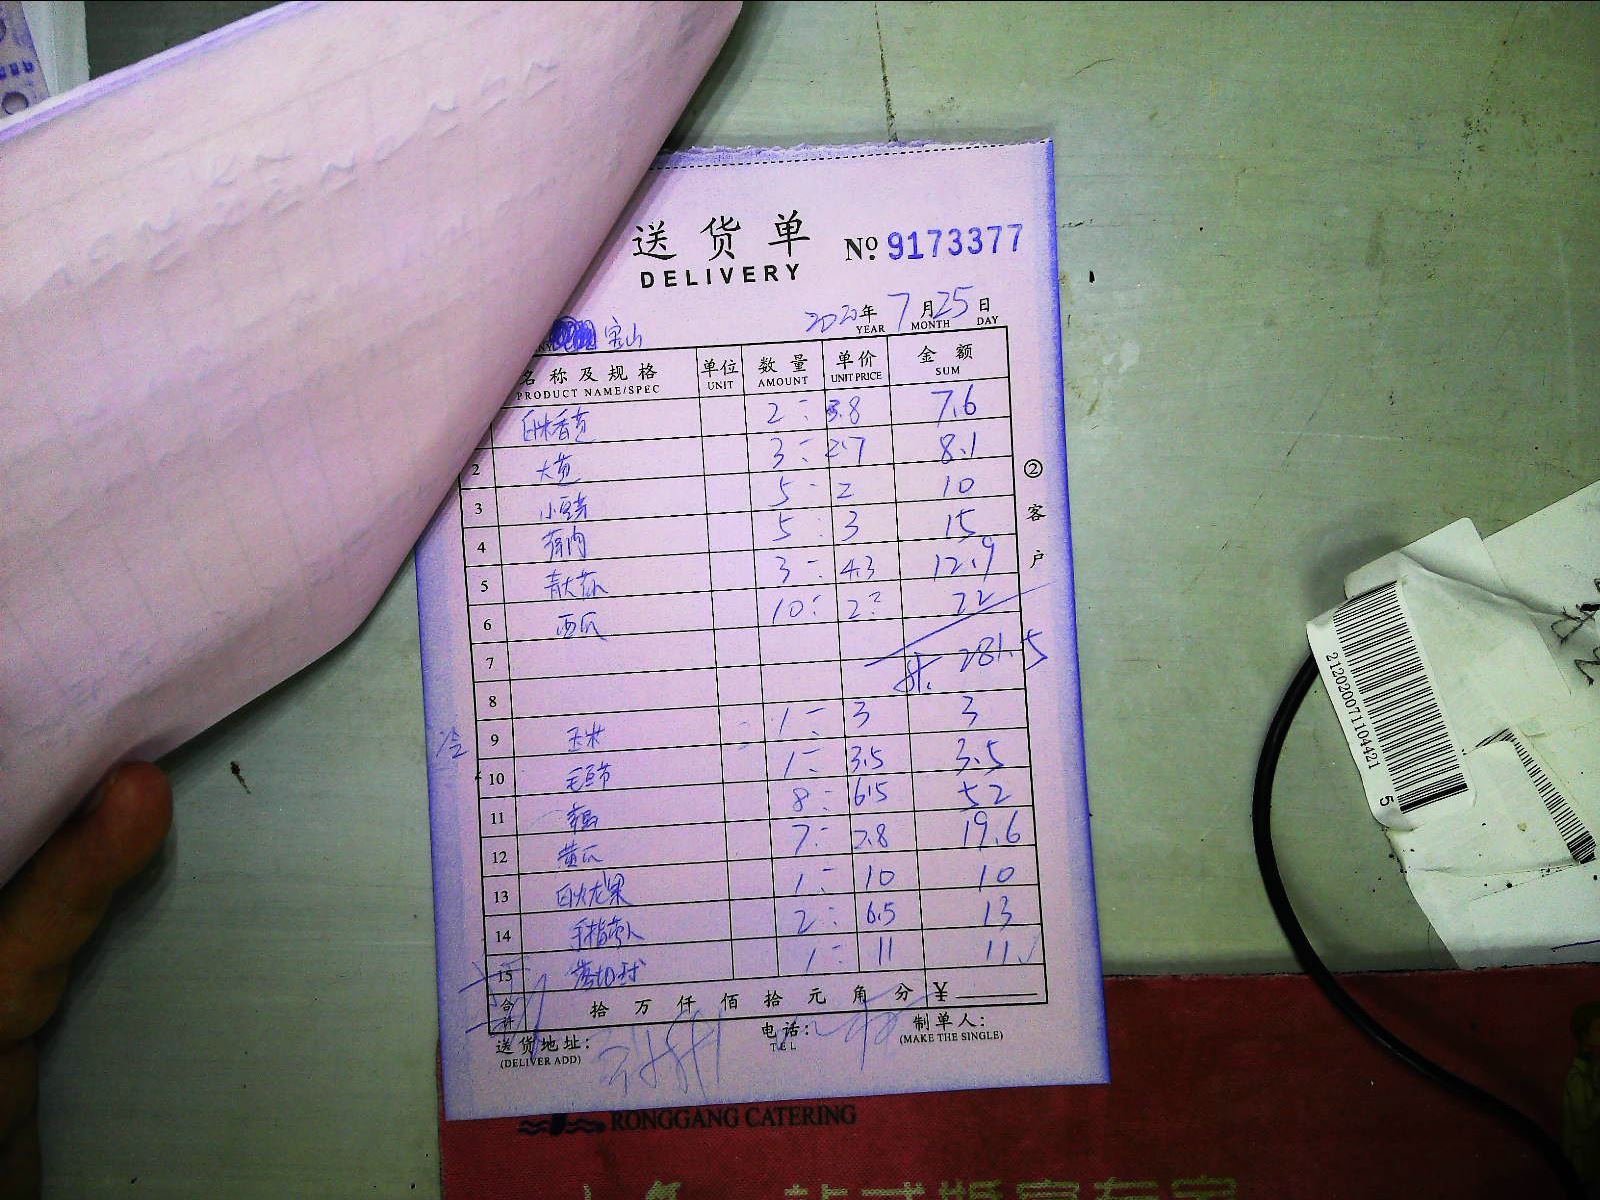 送货单 No. 9173377
DELIVERY
2020年 7月 25日
YEAR MONTH DAY
宝山
名称及规格 单位 数量 单价 金额
PRODUCT NAME/SPEC UNIT AMOUNT UNIT PRICE SUM
白米香苋 2 3.8 7.6
2 大苋 3 2.7 8.1
3 5 2 10
4 5 3 15
5 3 4.3 12.9
6 西瓜 10 2.2 22
7 281.5
8
9 玉米 1 3 3
冷
10 毛豆节 1 3.5 3.5
11 8 6.5 52
12 黄瓜 7 2.8 19.6
13 白火龙果 1 10 10
14 2 6.5 13
15 1 11 11
合计 拾 万 仟 佰 拾 元 角 分 ¥
送货地址: 电话: 制单人:
(DELIVER ADD) TEL (MAKE THE SINGLE)
② 客户
RONGGANG CATERING
2120200711104421
5